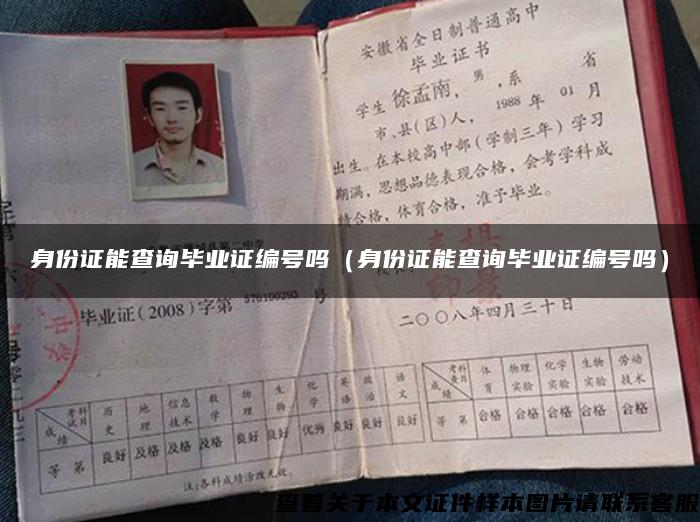 安徽省全日制普通高中
毕业证书
学生 徐孟南, 男, 系 省
市、县(区)人, 1988 年 01 月
出生。在本校高中部(学制三年)学习
期满, 思想品德表现合格, 会考学科成
绩合格, 体育合格, 准予毕业。
身份证能查询毕业证编号吗（身份证能查询毕业证编号吗）
毕业证(2008)字第 576100293 号
二〇〇八年四月三十日
考试科目 历史 地理 信息技术 数学 物理 生物 化学 英语 政治 语文
成绩
等第 良好 及格 及格 及格 良好 良好 优秀 良好 良好 良好
注:各科成绩涂改无效。
考查科目 体育 物理实验 化学实验 生物实验 劳动技术
成绩
等第 合格 合格 合格 合格 合格
查看关于本文证件样本图片请联系客服